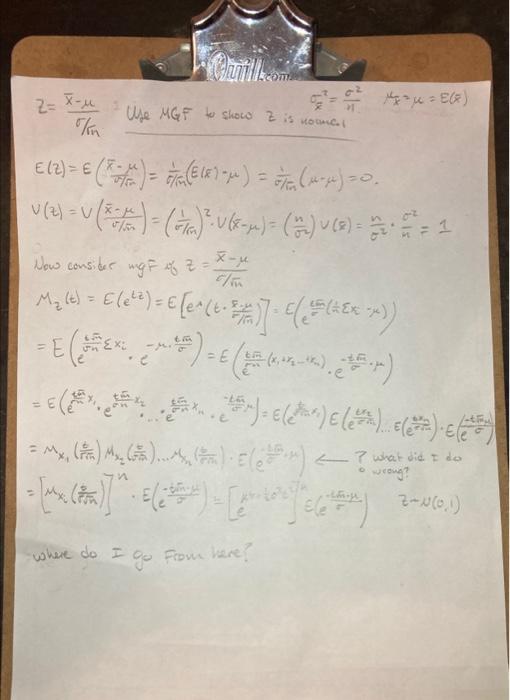 Quill.com
Z = (x̄-μ)/(σ/√n) : Use MGF to show Z is normal  σ_x̄² = σ²/n  μ_x̄ = μ = E(x̄)
E(Z) = E((x̄-μ)/(σ/√n)) = 1/(σ/√n) (E(x̄)-μ) = 1/(σ/√n) (μ-μ) = 0.
V(Z) = V((x̄-μ)/(σ/√n)) = (1/(σ/√n))² · V(x̄-μ) = (n/σ²) V(x̄) = n/σ² · σ²/n = 1
Now consider mgF of Z = (x̄-μ)/(σ/√n)
M_Z(t) = E(e^{tZ}) = E[e^(t · (x̄-μ)/(σ/√n))] = E(e^{t√n/σ (1/n Σxi - μ)})
= E(e^{t√n/(σn) Σxi} · e^{-μ · t√n/σ}) = E(e^{t√n/(σn) (x₁+x₂...+xₙ)} · e^{-t√n/σ · μ})
= E(e^{t√n/(σn) x₁} · e^{t√n/(σn) x₂} · ... · e^{t√n/(σn) xₙ} · e^{-t√n/σ μ}) = E(e^{t/(σ√n) x₁}) E(e^{tx₂/(σ√n)}) ... E(e^{txₙ/(σ√n)}) · E(e^{-t√n μ/σ})
= M_x₁(t/(σ√n)) M_x₂(t/(σ√n)) ... M_xₙ(t/(σ√n)) · E(e^{-t√n/σ · μ}) ← ? what did I do wrong?
= [M_xi(t/(σ√n))]ⁿ · E(e^{-t√n·μ/σ}) = [e^{μt+½σ²t²}]ⁿ E(e^{-t√n·μ/σ})  Z~N(0,1)
where do I go From here?